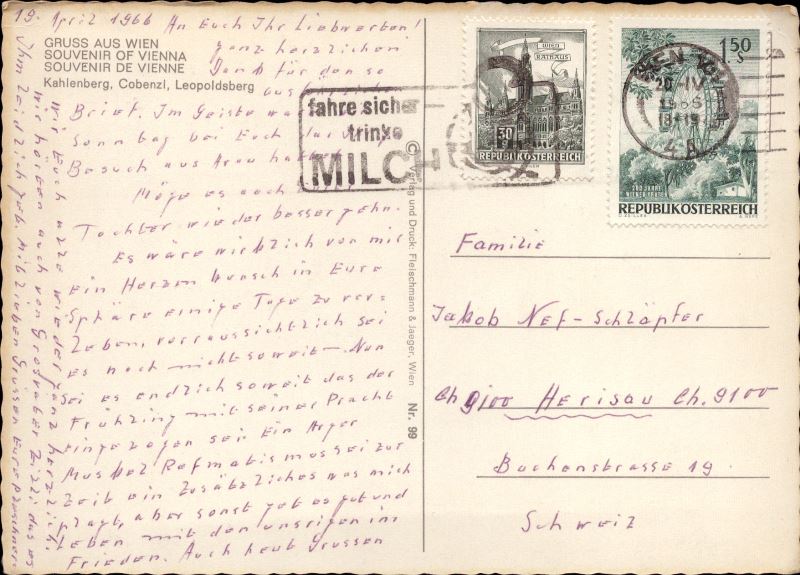 19. April 1966 An Euch Ihr Liebwerten!
Ganz herzlichen
Dank für den so
GRUSS AUS WIEN
SOUVENIR OF VIENNA
SOUVENIR DE VIENNE
Kahlenberg, Cobenzl, Leopoldsberg
Brief. Im Geiste
Sonntag bei Euch
Besuch aus
Möge es auch
Tochter wieder besser gehn.
Es wäre wirklich von mir
ein Herzen Wunsch in Eure
Sphäre einige Tage zu ver=
Leben, vorraussichtlich sei
es noch nicht soweit – Nun
sei es endlich soweit das der
Frühling mit seiner Pracht
eingezogen sei Ein Arger
Muskel Refmatis mus sei zur
Zeit ein Zusätzliches was mich
plagt, aber sonst geht es gut und
Leben mit den unsrigen im
Frieden. Auch heut Grussen
wir Euch alle wieder ganz herzlich.
wir hören auch von Grossvater Zilli das es
Ihm zeitlich geh. Mit lieben Grussen Eure
fahre sicher
trinke
MILCH
WIEN
RATHAUS
30 g
REPUBLIK ÖSTERREICH
1.50 S
WIEN 101
20.-IV.
1966
18-19
4A
100 JAHRE
WIENER PRATER
REPUBLIK ÖSTERREICH
© Verlag und Druck: Fleischmann & Jaeger, Wien Nr. 99
Familie
Jakob Nef-Schläpfer
CH 9100 Herisau Ch. 9100
Buchenstrasse 19.
Schweiz